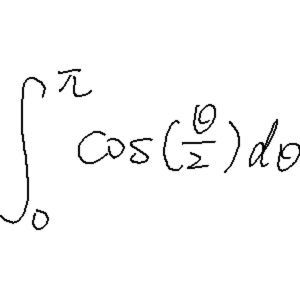 \int_{0}^{\pi} \cos(\frac{\theta}{2}) d\theta